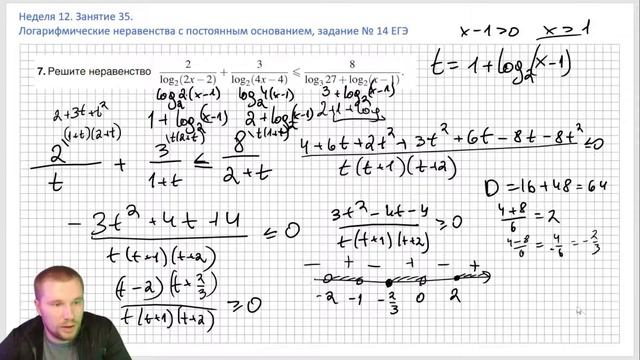 Неделя 12. Занятие 35.
Логарифмические неравенства с постоянным основанием, задание № 14 ЕГЭ
x-1>0  x>1
t=1+log₂(x-1)
7. Решите неравенство 2/log₂(2x − 2) + 3/log₂(4x − 4) ⩽ 8/(log₃27 + log₂(x − 1)).
log₂2(x-1)  log₂4(x-1)  3+log₂(x-1)
1+log₂(x-1)  2+log₂(x-1)  2+1+log₂
2+3t+t²
(1+t)(2+t)  t(2+t)  t(1+t)
2/t + 3/(1+t) ≤ 8/(2+t)
(4+6t+2t²+3t²+6t-8t-8t²)/(t(t+1)(t+2)) ≤0
D=16+48=64
(4+8)/6=2
(4-8)/6=-4/6=-2/3
(-3t²+4t+4)/(t(t+1)(t+2)) ≤0
(3t²-4t-4)/(t(t+1)(t+2)) ≥0
(t-2)(t+2/3)/(t(t+1)(t+2)) ≥0
- + - + - +
-2 -1 -2/3 0 2